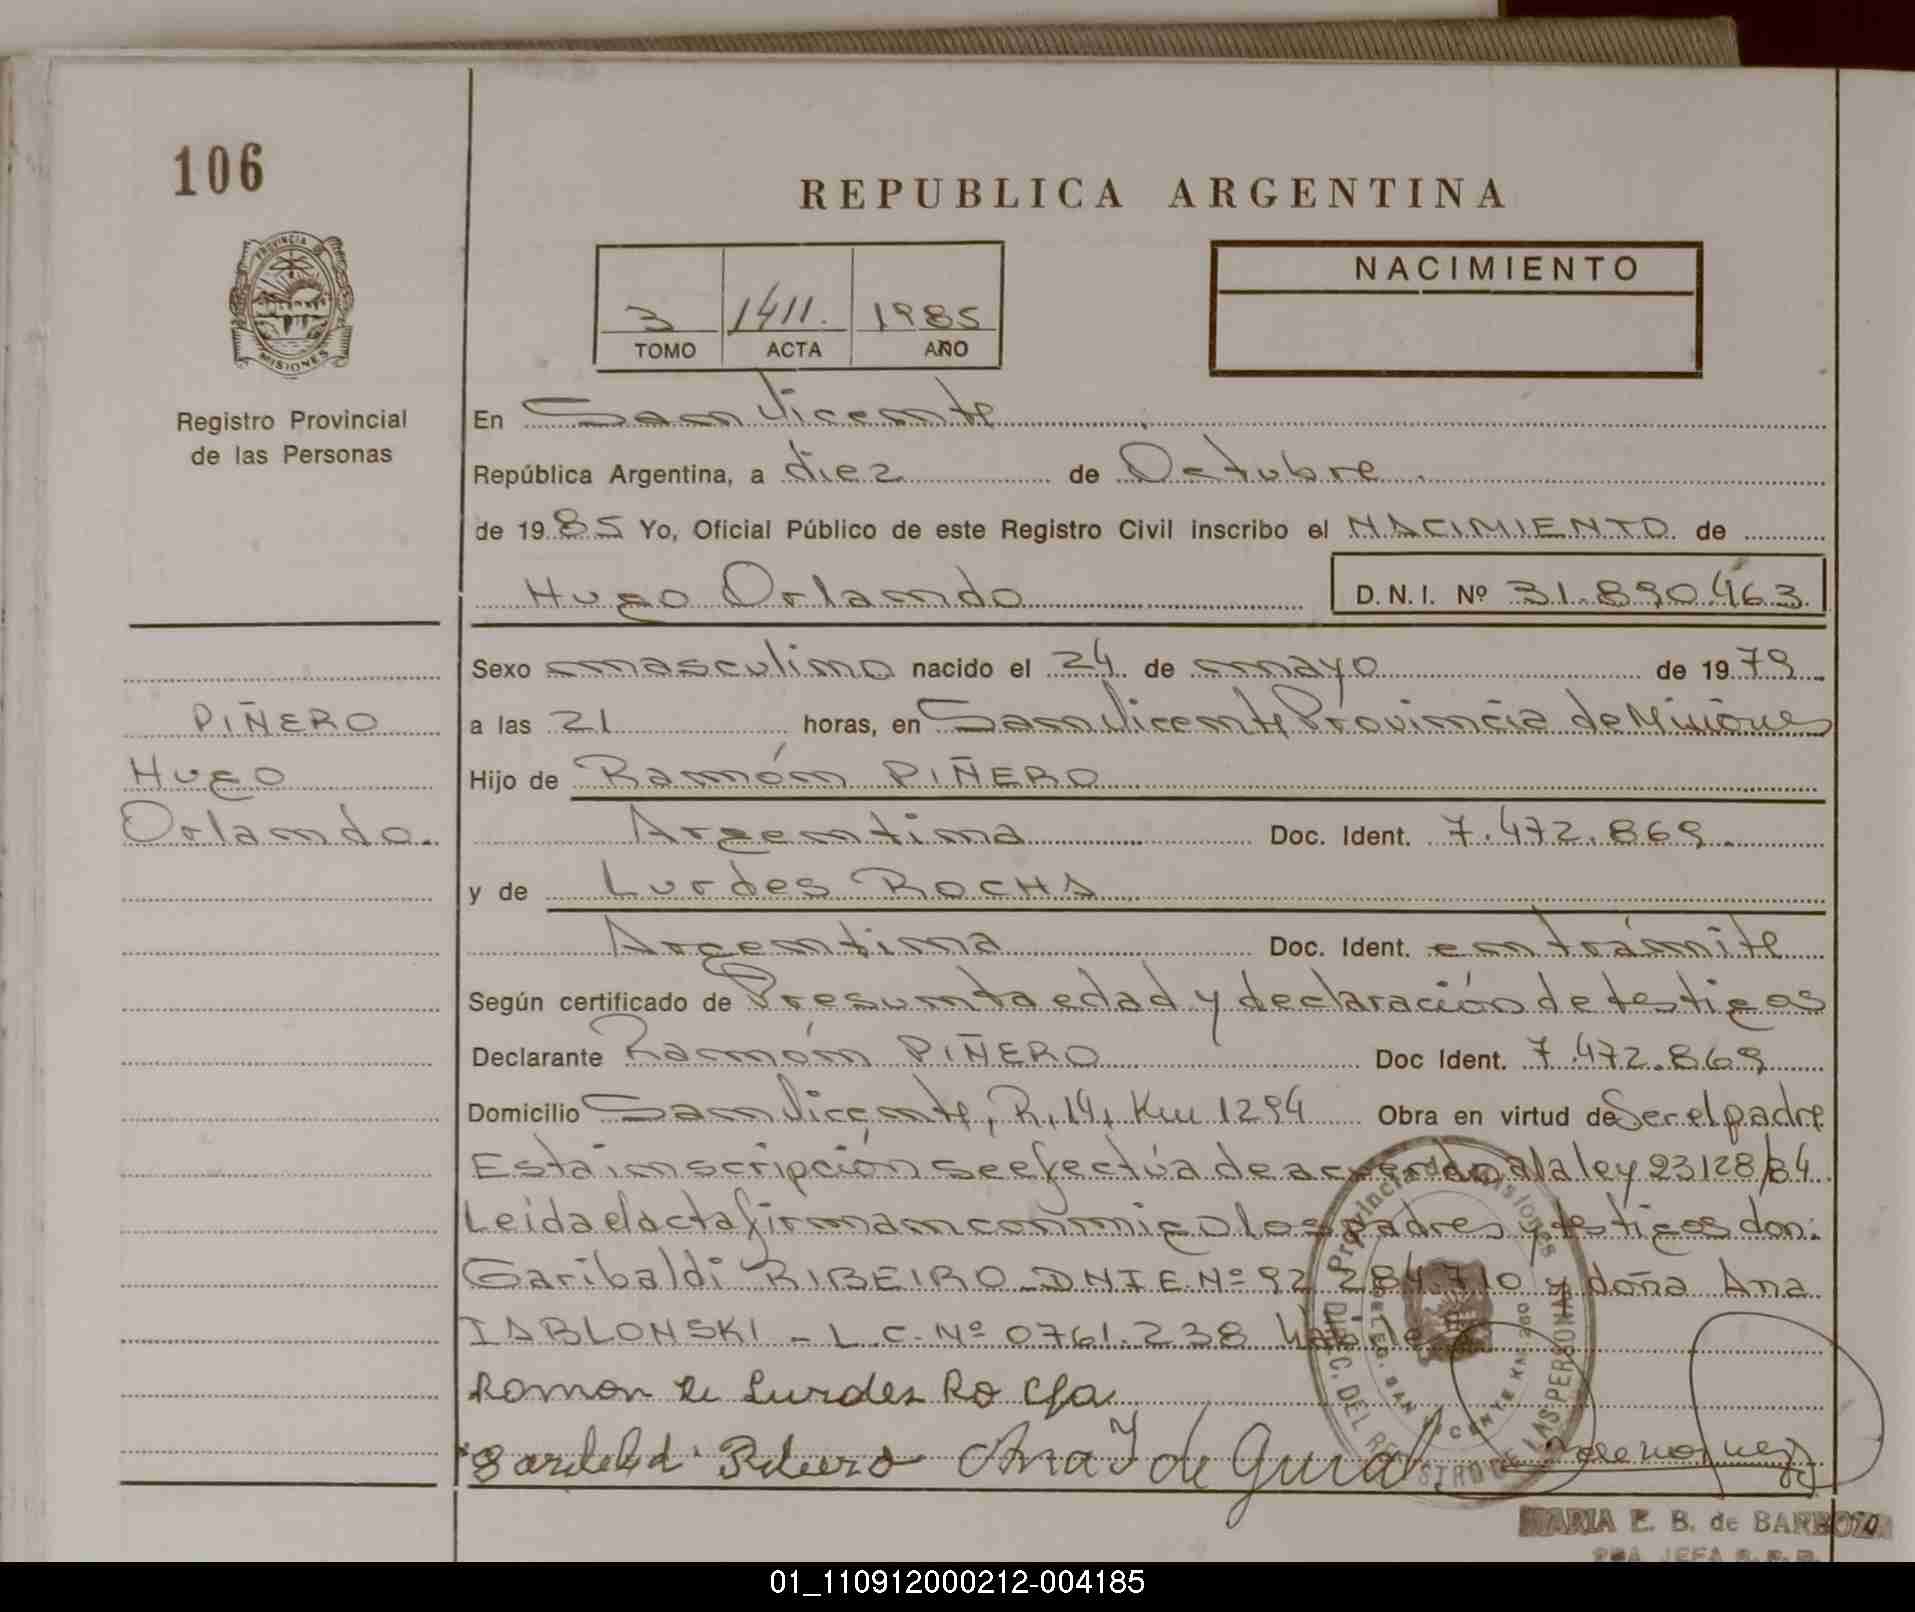 106
REPUBLICA ARGENTINA
PROVINCIA DE
MISIONES
NACIMIENTO
3 1411. 1985
TOMO ACTA AÑO
Registro Provincial
de las Personas
En San Vicente
República Argentina, a diez de Octubre
de 1985 Yo, Oficial Público de este Registro Civil inscribo el NACIMIENTO de
Hugo Orlando D.N.I. Nº 31.890.463
Sexo masculino nacido el 24 de mayo de 1979
PIÑERO
Hugo
Orlando.
a las 21 horas, en San Vicente Provincia de Misiones
Hijo de Ramón PIÑERO
Argentina Doc. Ident. 7.472.869
y de Lurdes ROCHA
Argentina Doc. Ident. en trámite
Según certificado de Presunta edad y declaración de testigos
Declarante Ramón PIÑERO Doc Ident. 7.472.869
Domicilio San Vicente, R. 14, Km 1294 Obra en virtud de Ser el padre
Esta inscripción se efectúa de acuerdo a la ley 23128/84
Leida el acta firman conmigo los padres y testigos don:
Garibaldi RIBEIRO - DNIE Nº 92 284.710 y doña Ana
IABLONSKI - L.C. Nº 0761.238
Lurdes Rocha
Ana I de
Provincia de Misiones
DIREC. DEL REGISTRO DE LAS PERSONAS
MARIA E. B. de BARBOZA
01_110912000212-004185